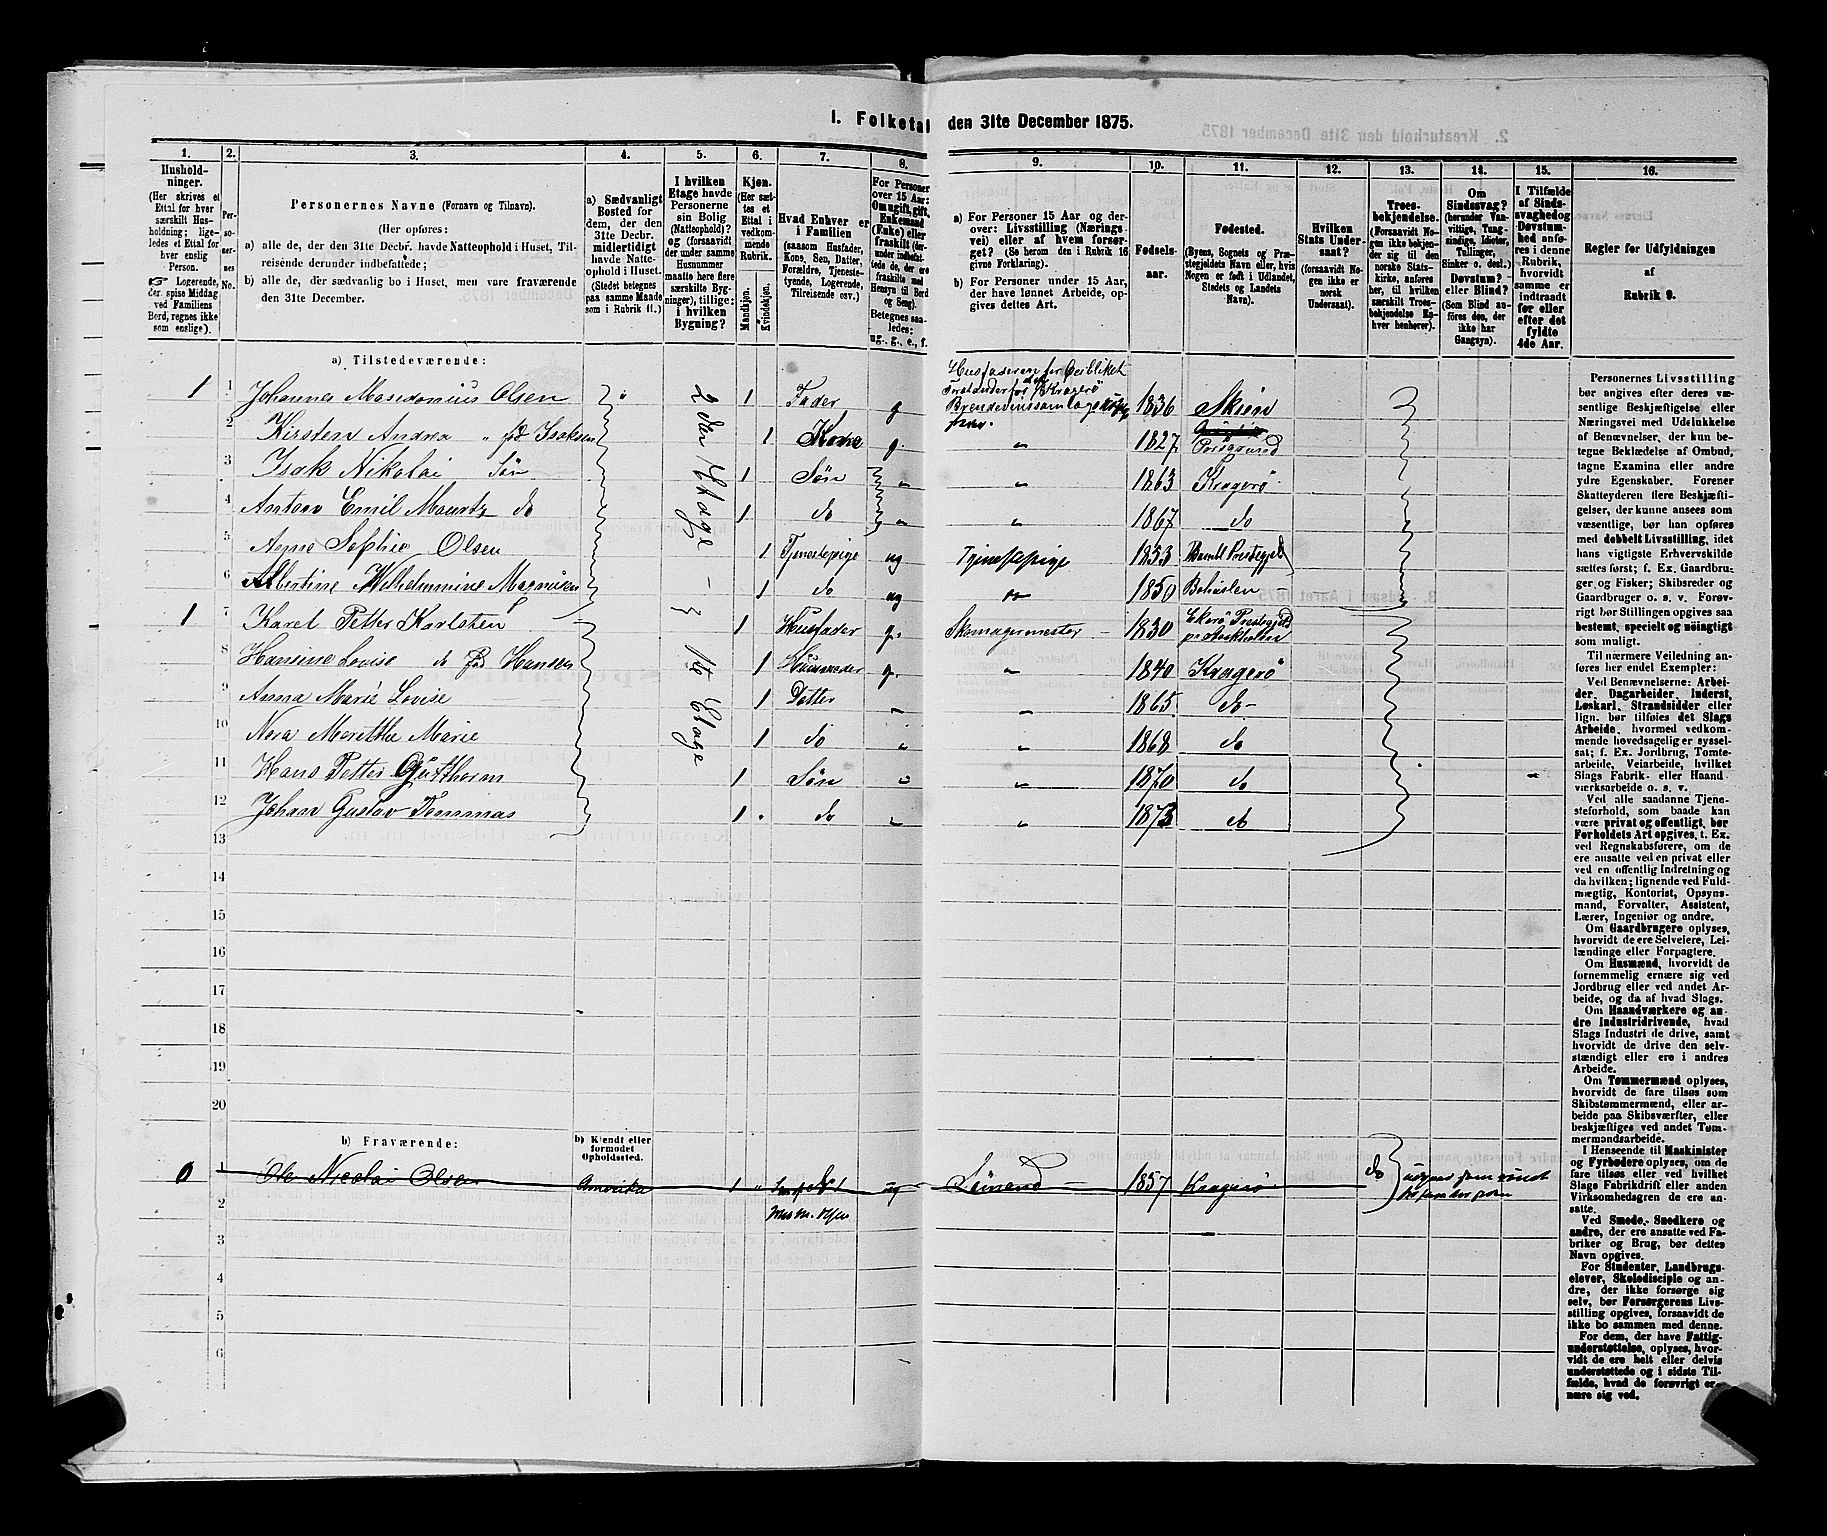 1. Folketæ den 31te December 1875.
2. Kreaturhold den 31te December 1875
1. 2. 3. 4. 5. 6. 7. 8. 9. 10. 11. 12. 13. 14. 15. 16.
Hushold-
ninger.
(Her skrives et
Ettal for hver
særskilt Hus-
holdning; lige-
ledes et Ettal for
hver enslig
Person.
☞ Logerende,
der spise Middag
ved Familiens
Bord, regnes ikke
som enslige).
Per-
so-
ner-
nes
No.
Personernes Navne (Fornavn og Tilnavn).
(Her opføres:
a) alle de, der den 31te Decbr. havde Natteophold i Huset, Til-
reisende derunder indbefattede;
b) alle de, der sædvanlig bo i Huset, men vare fraværende
den 31te December.
a) Sædvanligt
Bosted for
dem, der den
31te Decbr.
midlertidigt
havde Natte-
ophold i Huset.
(Stedet betegnes
paa samme Maade
som i Rubrik 11.)
I hvilken
Etage havde
Personerne
sin Bolig
(Natteophold)?
og (forsaavidt
der under samme
Husnummer
maatte flere
særskilte Byg-
ninger), tillige:
i hvilken
Bygning?
Kjøn.
(Her sæt-
tes et
Ettal i
vedkom-
mende
Rubrik.
Mandkjøn.
Kvindekjøn.
Hvad Enhver er
i Familien
(saasom Husfader,
Kone, Søn, Datter,
Forældre, Tjeneste-
tyende, Logerende,
Tilreisende osv.)
For Personer
over 15 Aar:
Om ugift, gift,
Enkemand
(Enke) eller
fraskilt (der-
under indbefat-
tede de, der ere
fraskilte med
Hensyn til Bord
og Seng).
Betegnes saa-
ledes:
ug., g., e., f.
a) For Personer 15 Aar og der-
over: Livsstilling (Nærings-
vei) eller af hvem forsør-
get? (Se herom den i Rubrik 16
givne Forklaring).
b) For Personer under 15 Aar,
der have lønnet Arbeide, op-
gives dettes Art.
Fødsels-
aar.
Fødested.
(Byens, Sognets og Præ-
stegjeldets Navn eller, hvis
Nogen er født i Udlandet,
Stedets og Landets
Navn).
Hvilken
Stats Under-
saat?
(forsaavidt No-
gen ikke er
norsk
Undersaat).
Troes-
bekjendelse.
(Forsaavidt No-
gen ikke bekjen-
der sig til den
norske Stats-
kirke, anføres
her, til hvilken
særskilt Troes-
bekjendelse En-
hver henhører).
Om
Sindssvag?
(herunder Van-
vittige, Tung-
sindige, Idioter,
Tullinger,
Sinker o. desl.)
Døvstum?
eller Blind?
(Som Blind an-
føres den, der
ikke har
Gangsyn).
I Tilfælde
af Sinds-
svaghed og
Døvstum-
hed anfø-
res i denne
Rubrik,
hvorvidt
samme er
indtraadt
før eller
efter det
fyldte
4de Aar.
Regler for Udfyldningen
af
Rubrik 9.
a) Tilstedeværende:
1 1 Johannes Masedonius Olsen 2den Etage 1 Fader g 1836 Skien
Brændevinssamlaget
2 Kirsten Andrea " fød Isaksen 1 Kone g. " 1827 Porsgrund
3 Isak Nikolai Søn 1 Søn " " 1863 Kragerø
4 Anton Emil Mauritz do 1 do " " 1867 do
5 Agne Sophie Olsen 1 Tjenestepige ug Tjenestepige 1853 Bamble Prestegjeld
6 Albertine Wilhelmmine Magnusen 1 do ug " 1850 Bohuslen
1 7 Karel Petter Karlsten 1ste Etage 1 Husfader g. Skomagermester 1830
8 Hansine Lovise do fød Hansen 1 Husmoder g. " 1840 Kragerø
9 Anna Marie Lovise 1 Datter " " 1865 do
10 Nora Merethe Marie 1 do " " 1868 do
11 Hans Petter Gutthorm 1 Søn " " 1870 do
12 Johan Gustav Tommas 1 do " " 1873 do
13
14
15
16
17
18
19
20
b) Fraværende:
b) Kjendt eller
formodet
Opholdssted.
0 1 Ole Nicolai Olsen Amerika 1 " ug Sømand 1857 Kragerø do
2
3
4
5
6
Personernes Livsstilling
bør angives efter deres væ-
sentlige Beskjæftigelse eller
Næringsvei med Udelukkelse
af Benævnelser, der kun be-
tegne Beklædelse af Ombud,
tagne Examina eller andre
ydre Egenskaber. Forener
Skatteyderen flere Beskjæfti-
gelser, der kunne ansees som
væsentlige, bør han opføres
med dobbelt Livsstilling, idet
hans vigtigste Erhvervskilde
sættes først; f. Ex. Gaardbru-
ger og Fisker; Skibsreder og
Gaardbruger o. s. v. Forøv-
rigt bør Stillingen opgives saa
bestemt, specielt og nøiagtigt
som muligt.
Til nærmere Veiledning an-
føres her endel Exempler:
Ved Benævnelserne: Arbei-
der, Dagarbeider, Inderst,
Løskarl, Strandsidder eller
lign. bør tilføies det Slags
Arbeide, hvormed vedkom-
mende hovedsagelig er syssel-
sat; f. Ex. Jordbrug, Tomte-
arbeide, Veiarbeide, hvilket
Slags Fabrik- eller Haand-
værksarbeide o. s. v.
Ved alle saadanne Tjene-
steforhold, som baade kan
være privat og offentligt, bør
Forholdets Art opgives, t. Ex.
ved Regnskabsførere, om de
ere ansatte ved en privat eller
ved en offentlig Indretning og
da hvilken; lignende ved Fuld-
mægtig, Kontorist, Opsyns-
mand, Forvalter, Assistent,
Lærer, Ingeniør og andre.
Om Gaardbrugere oplyses,
hvorvidt de ere Selveiere, Lei-
lændinge eller Forpagtere.
Om Husmænd, hvorvidt de
fornemmelig ernære sig ved
Jordbrug eller ved andet Ar-
beide, og da af hvad Slags.
Om Haandværkere og an-
dre Industridrivende, hvad
Slags Industri de drive, samt
hvorvidt de drive den selv-
stændigt eller ere i andres
Arbeide.
Om Tømmermænd oplyses,
hvorvidt de fare tilsøs som
Skibstømmermænd, eller ar-
beide paa Skibsværfter, eller
beskjæftiges ved andet Tøm-
mermandsarbeide.
I Henseende til Maskinister
og Fyrbødere oplyses, om de
fare tilsøs eller ved hvilket
Slags Fabrikdrift eller anden
Virksomhedsgren de ere an-
satte.
Ved Smede, Snedkere og
andre, der ere ansatte ved Fa-
briker og Brug, bør dettes
Navn opgives.
For Studenter, Landbrugs-
elever, Skoledisciple og an-
dre, der ikke forsørge sig
selv, bør Forsørgerens Livs-
stilling opgives, forsaavidt de
ikke bo sammen med denne.
For dem, der have Fattig-
understøttelse, oplyses, hvor-
vidt de ere helt eller delvis
understøttede og i sidste Til-
fælde, hvad de forøvrigt er-
nære sig ved.